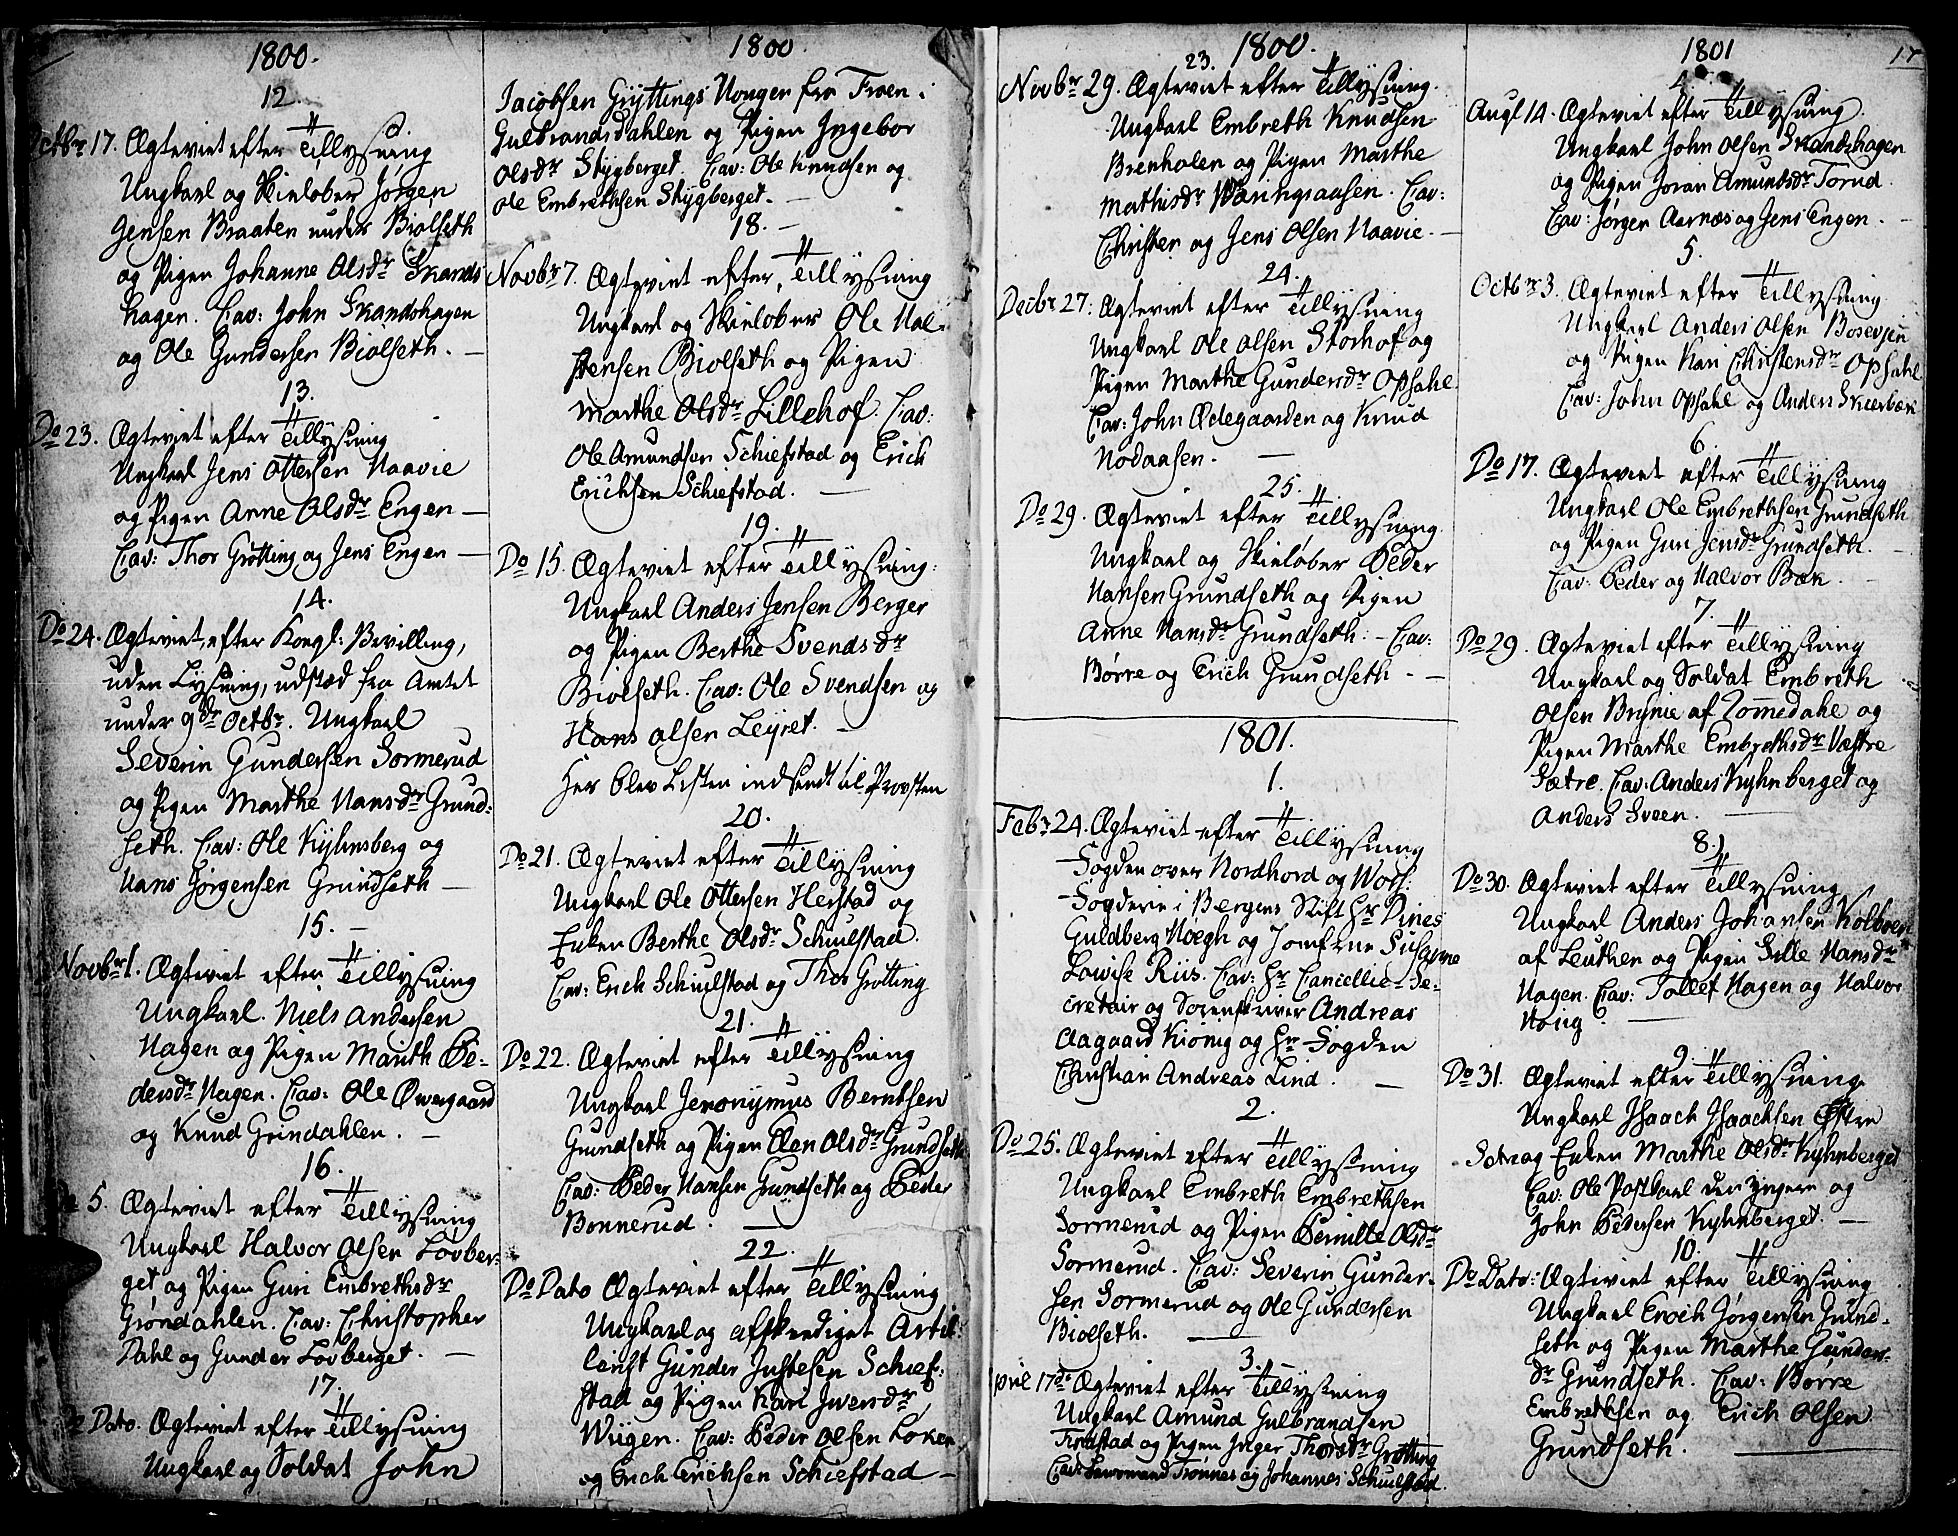 1800.
12.
Octbr 17. Ægteviet efter Tillysning
Ungkarl og Skieløber Jørgen
Jensen Braaten under Biolseth
og Pigen Johanne Olsdr Skands
hagen. Cav: John Skandshagen
og Ole Gundersen Biolseth. —
13.
Do 23. Ægteviet efter Tillysning
Ungkarl Jens Ottersen Naavie
og Pigen Anne Olsdr Engen —
Cav: Thor Grøtting og Jens Engen —
14.
Do 24. Ægteviet, efter Kongl: Bevilling,
uden Lysning, udstæd fra Amtet
under 9de Octbr. Ungkarl
Severin Gundersen Sormerud
og Pigen Marthe Hansdr Grund-
seth. Cav: Ole Kyhnsberg og
Hans Jørgensen Grundseth —
15. —
Novbr 1. Ægteviet efter Tillysning
Ungkarl. Niels Andersen
Hagen og Pigen Marith Pe-
dersdr Hagen. Cav: Ole Øvergaard
og Knud Grindahlen. —
16.
5. Ægteviet efter Tillysning
Ungkarl Halvor Olsen Lovber-
get, og Pigen Guri Embrethsdr
Grøndahlen. Cav: Christopher
Dahl og Gunder Lovberget. —
17.
Do Dato. Ægteviet efter Tillysning
Ungkarl og Soldat John
1800
Jacobsen Gryttings Uonger fra Froen i
Gulbrandsdahlen og Pigen Ingebor
Olsdr Stygberget. Cav: Ole Knudsen og
Ole Embrethsen Stygberget. —
18. —
Novbr 7. Ægteviet efter, Tillysning
Ungkarl og Skieløber Ole Hal-
stensen Biolseth og Pigen
Marthe Olsdr Lillehof. Cav:
Ole Amundsen Schiefstad og Erich
Erichsen Schiefstad. —
19.
Do 15. Ægteviet efter Tillysning:
Ungkarl Anders Jensen Berger
og Pigen Berthe Svendsdr
Biolseth. Cav: Ole Svendsen og
Hans Olsen Leyret. —
Her blev Listen indsendt til Provsten
20.
Do 21. Ægteviet efter Tillysning
Ungkarl Ole Ottersen Herstad og
Enken Berthe Olsdr Schiulstad.
Cav: Erich Schiulstad og Thor Grøtting
21.
Do 22. Ægteviet efter Tillysning
Ungkarl Jeronymus Berntsen
Grundseth og Pigen Elen Olsdr Grundseth
Cav: Peder Hansen Grundseth og Peder
Bonnerud. —
22.
Do Dato Ægteviet efter Tillysning
Ungkarl og afskediget Artil-
lerist Gunder Justesen Schief-
stad og Pigen Kari Iversdr
Wiigen. Cav: Peder Olsen Loken
og Erich Erichsen Schiefstad —
1800.
23.
Novbr 29. Ægteviet efter Tillysning.
Ungkarl Embreth Knudsen
Brenholen og Pigen Marthe
Mathisdr Waningsaasen. Cav:
Christen og Jens Olsen Naavie. —
24.
Decbr 27. Ægteviet efter Tillysning
Ungkarl Ole Olsen Storhof og
Pigen Marthe Gundersdr Opsahl
Cav: John Ødegaarden og Knud
Nodaasen. —
25.
Do 29. Ægteviet efter Tillysning
Ungkarl og Skieløber Peder
Hansen Grundseth og Pigen
Anne Hansdr Grundseth. — Cav:
Børre og Erich Grundseth. —
1801.
1.
Febr 24. Ægteviet efter Tillysning
Fogden over Nordhord og Wors:
Fogderie i Bergens Stift Hr Dines
Guldberg Høegh og Jomfrue Susanne
Lovise Riis. Cav: Hr Cancellie-Se-
cretair og Sorenskriver Andreas
Aagaard Kiønig og Hr Fogden
Christian Andreas Lind. —
2.
Do 25. Ægteviet efter Tillysning
Ungkarl Embreth Embrethsen
Sormerud og Pigen Pernille Olsdr
Sormerud. Cav: Severin Gunder-
sen Sormerud og Ole Gundersen
Biolseth. —
3.
pril 17de Ægteviet efter Tillysning
Ungkarl Amund Gulbrandsen
Findstad og Pigen Inger Thorsdr Grøtting
Cav: Trønnes og Johannes Schiulstad.
1801
17
4.
Augl 14. Ægteviet efter Tillysning.
Ungkarl John Olsen Skandshagen
og Pigen Joran Amundsdr Torud.
Cav: Jørgen Aarnæs og Jens Engen. —
5.
Octbr 3. Ægteviet efter Tillysning
Ungkarl Anders Olsen Bosevien
og Pigen Kari Christensdr Opsahl
Cav: John Opsahl og Anders Skierbæk
6.
Do 17. Ægteviet efter Tillysning
Ungkarl Ole Embrethsen Grundseth
og Pigen Guri Jensdr Grundseth. —
Cav: Peder og Halvor Bæk. —
7.
Do 29. Ægteviet efter Tillysning
Ungkarl og Soldat Embreth
Olsen Brynie af Zomedahl og
Pigen Marthe Embrethsdr Væstre
Sætre. Cav: Anders Kyhnberget og
Anders Sveen. —
8.)
Do 30. Ægteviet efter Tillysning
Ungkarl Anders Johansen Kolboen
af Leuthen og Pigen Sille Hansdr
Hagen. Cav: Tollef Hagen og Halvor
Houg. —
9
Do 31. Ægteviet efter Tillysning
Ungkarl Isaach Isaachsen Østre
Setre og Enken Marthe Olsdr Kyhnberget
Cav: Ole Postkarl den Yngere og
John Pedersen Kyhnberget. —
10.
Do Dato: Ægteviet efter Tillysning
Ungkarl Erich Jørgensen Grund-
seth og Pigen Marthe Gunders-
dr Grundseth. Cav: Børre
Embrethsen og Erich Olsen
Grundseth. —